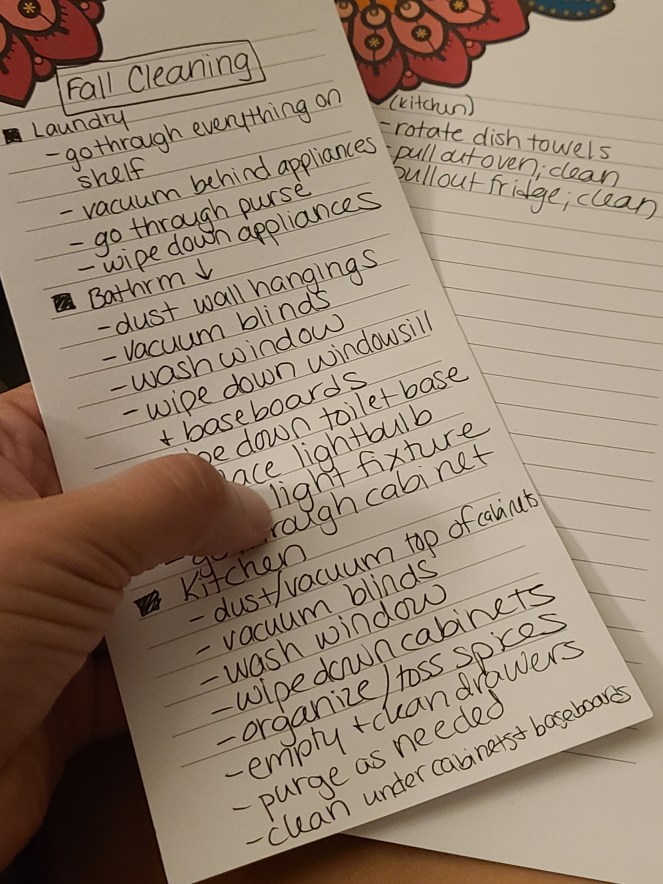 Fall Cleaning
Laundry
- go through everything on
shelf
- vacuum behind appliances
- go through purse
- wipe down appliances
Bathrm ↓
- dust wall hangings
- vacuum blinds
- wash window
- wipe down windowsill
+ baseboards
down toilet base
lightbulb
light fixture
cabinet
Kitchen
- dust/vacuum top of cabinets
- vacuum blinds
- wash window
- wipe down cabinets
- organize/toss spices
- empty + clean drawers
- purge as needed
- clean under cabinets + baseboards
(kitchen)
- rotate dish towels
- pull out oven; clean
pull out fridge; clean